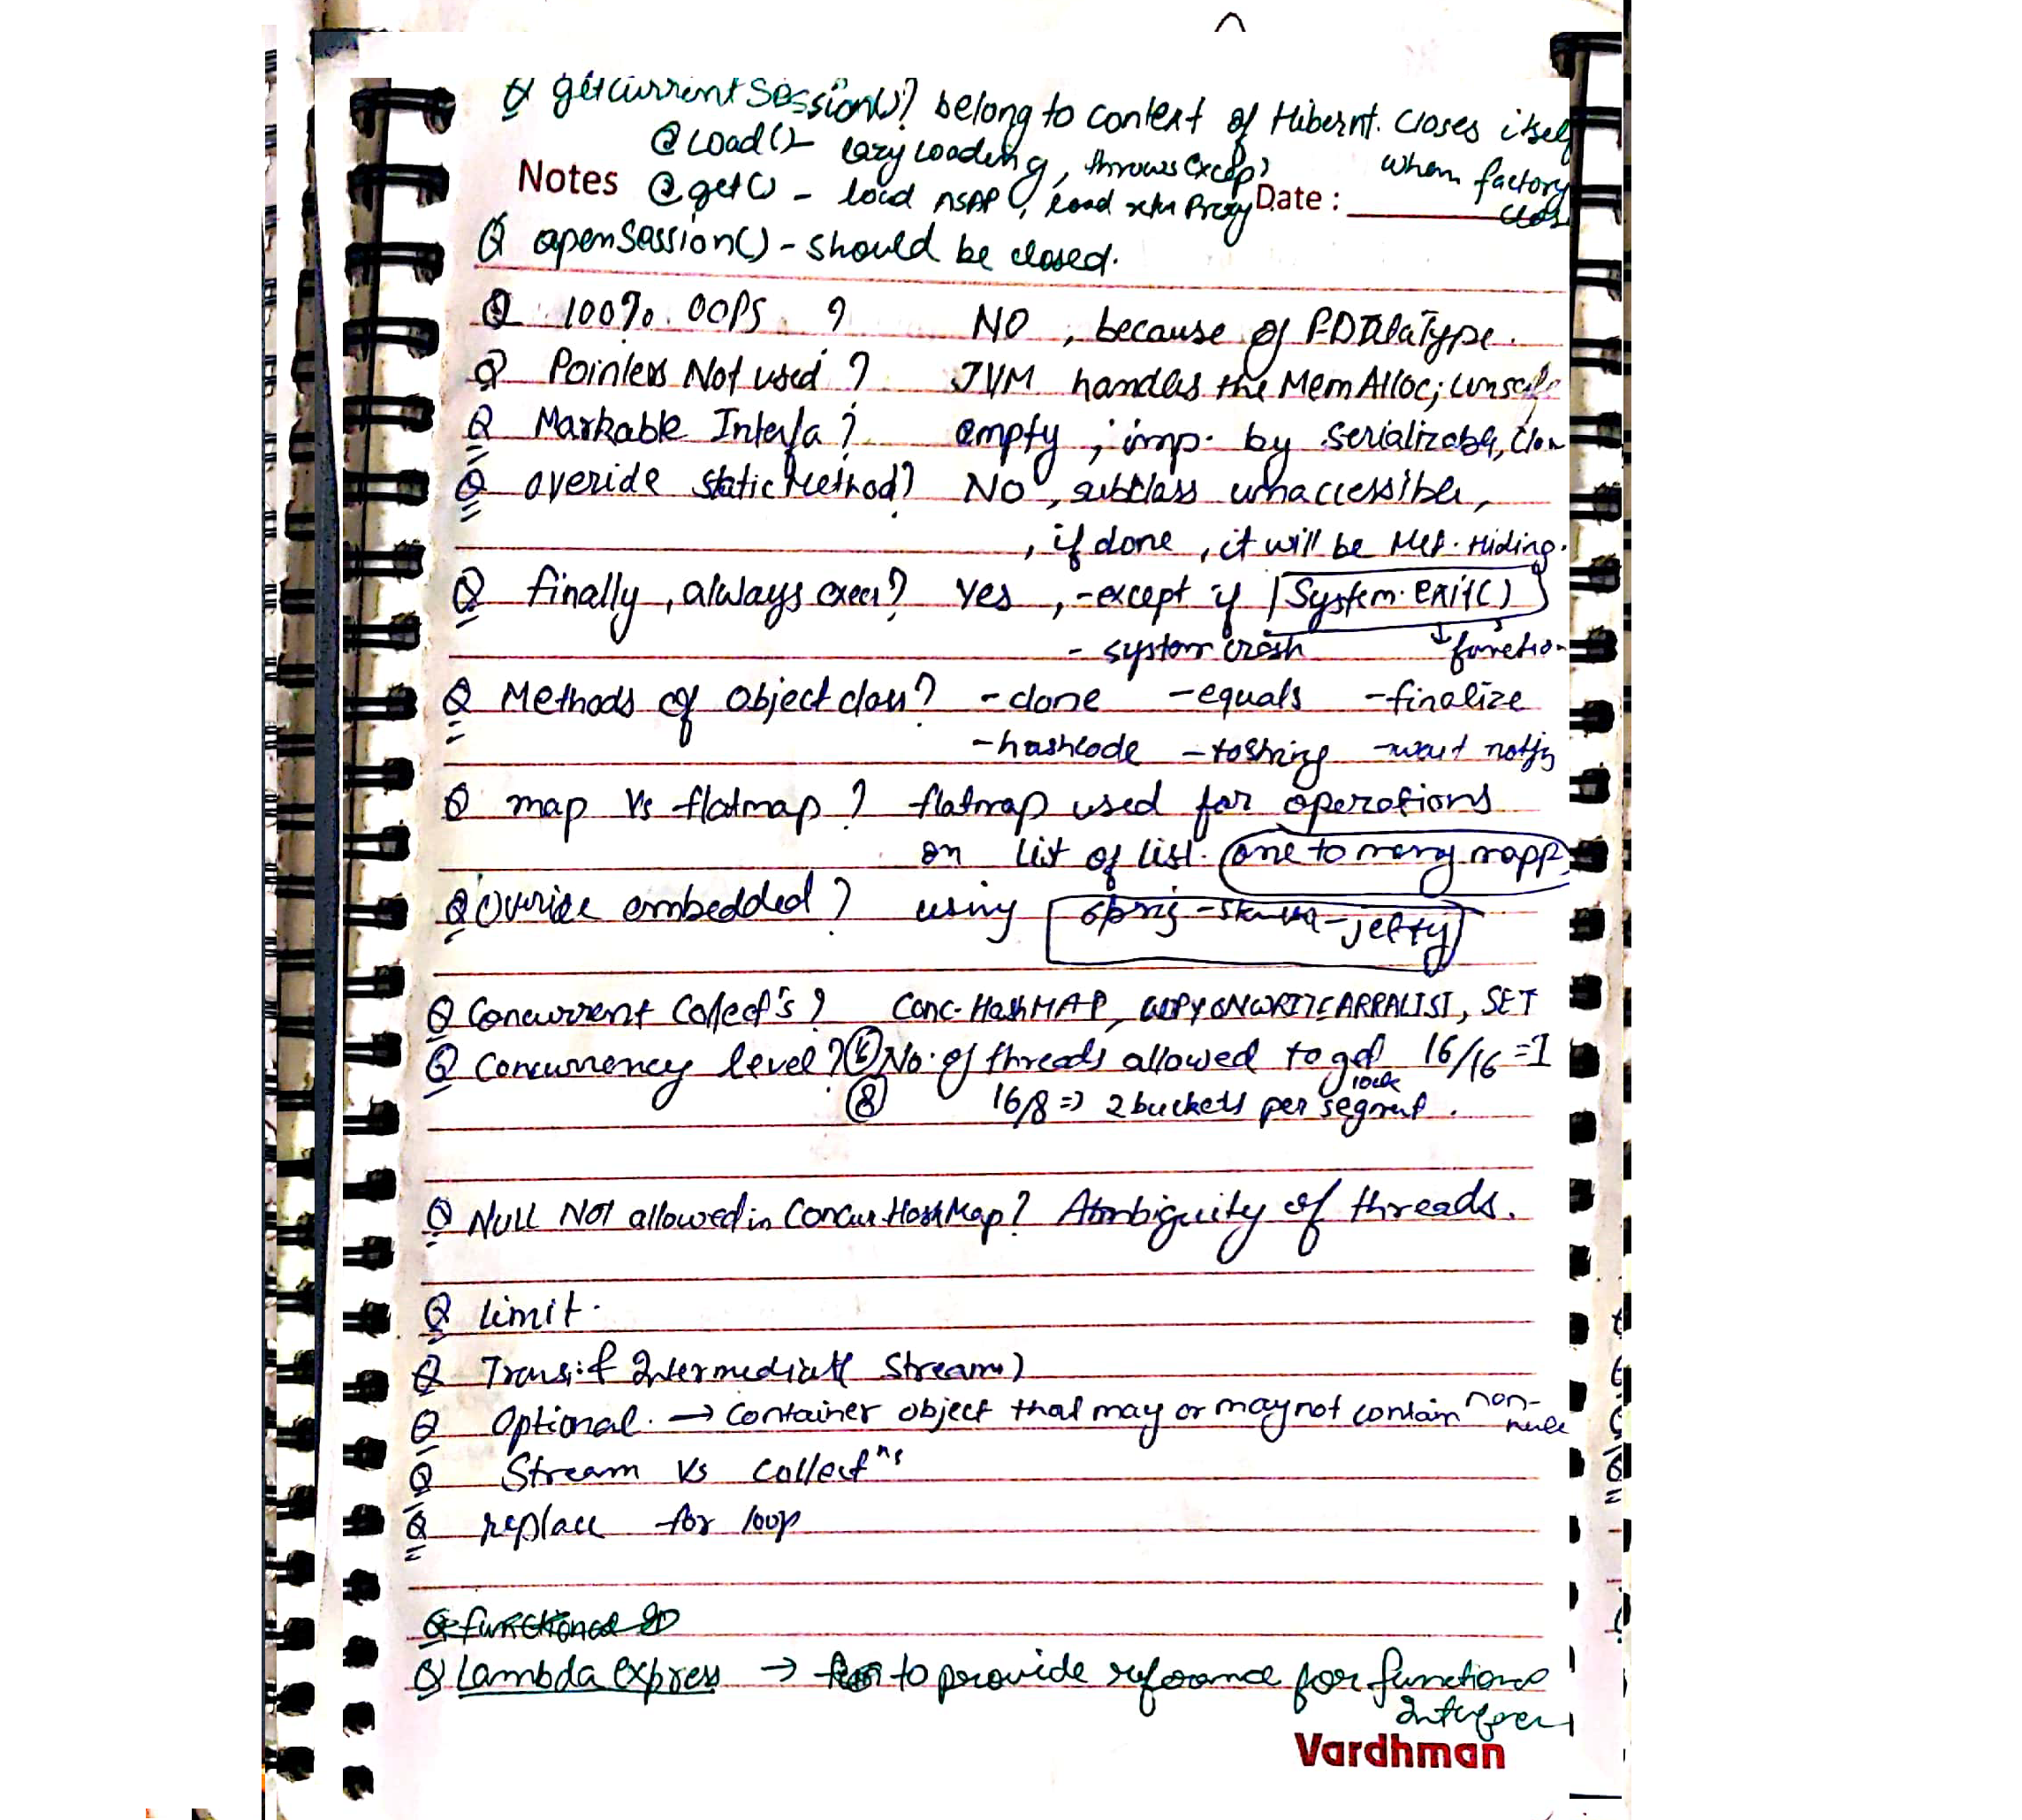 Q getcurrentSession()? belong to context of Hibernt. closes itself
@Load() lazy loading, throws excep? when factory
Notes @get() - load ASAP, load retn Proxy Date : clos
Q openSession() - should be closed.
Q 100% OOPS ? NO , because of P.DataType.
Q Pointers Not used ? JVM handles the Mem Alloc; unsafe
Q Markable Interfa ? empty ; imp. by serializable, Clon
Q overide static Method? NO , subclass unaccessible,
, if done , it will be Met. Hiding.
Q finally , always exec? Yes , -except if System.exit()
- system crash ↓ function
Q Methods of object class? -clone -equals -finalize
-hashcode -toString -wait notify
Q map Vs flatmap ? flatmap used for operations
on list of list. one to many mapp.
Q Override embedded ? using spring-starter-jetty
Q Concurrent Collect's ? Conc-HashMAP, COPYONWRITEARRALIST, SET
Q Concurrency level ? 16 No. of threads allowed to get lock 16/16 =1
8 16/8 => 2 buckets per segment .
Q NULL NOT allowed in Concur HashMap? Ambiguity of threads.
Q limit.
Q Transit Intermediate( Stream)
Q Optional. → Container object that may or may not contain non-null
Q Stream Vs Collectns
Q replace for loop
Q functional
Q Lambda Express → to provide referance for functional
Interfere
Vardhman